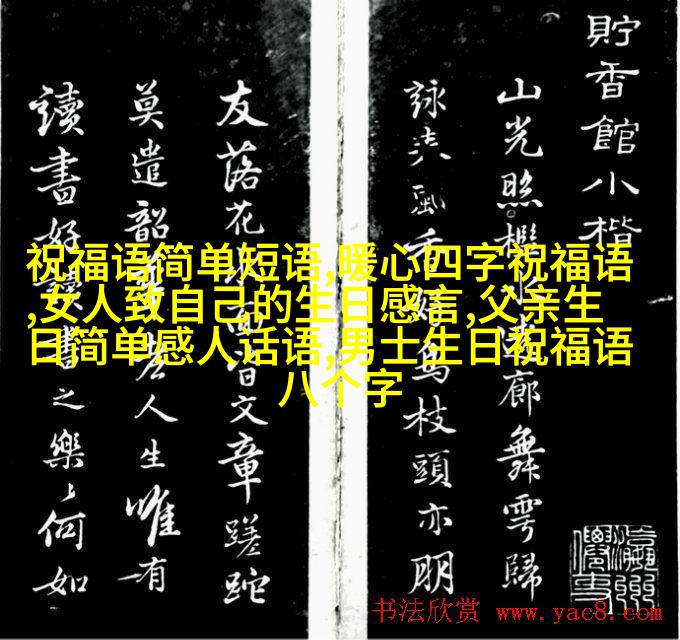 貯香館小楷
山光照檻水遶廊舞雩歸
詠春風香好鳥枝頭亦朋
友落花水面皆文章蹉跎
莫遣韶光老人生唯有
讀書好讀書之樂樂何如
祝福语简单短语,暖心四字祝福语
,女人致自己的生日感言,父亲生
日简单感人话语,男士生日祝福语
八个字
书法欣赏 www.yac8.com